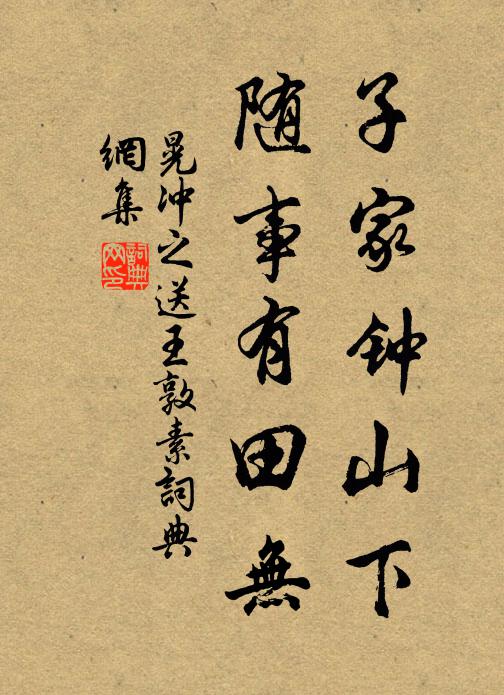 子家钟山下
随事有田無
晃冲之送王敦素詞典
網集
詞典
网印